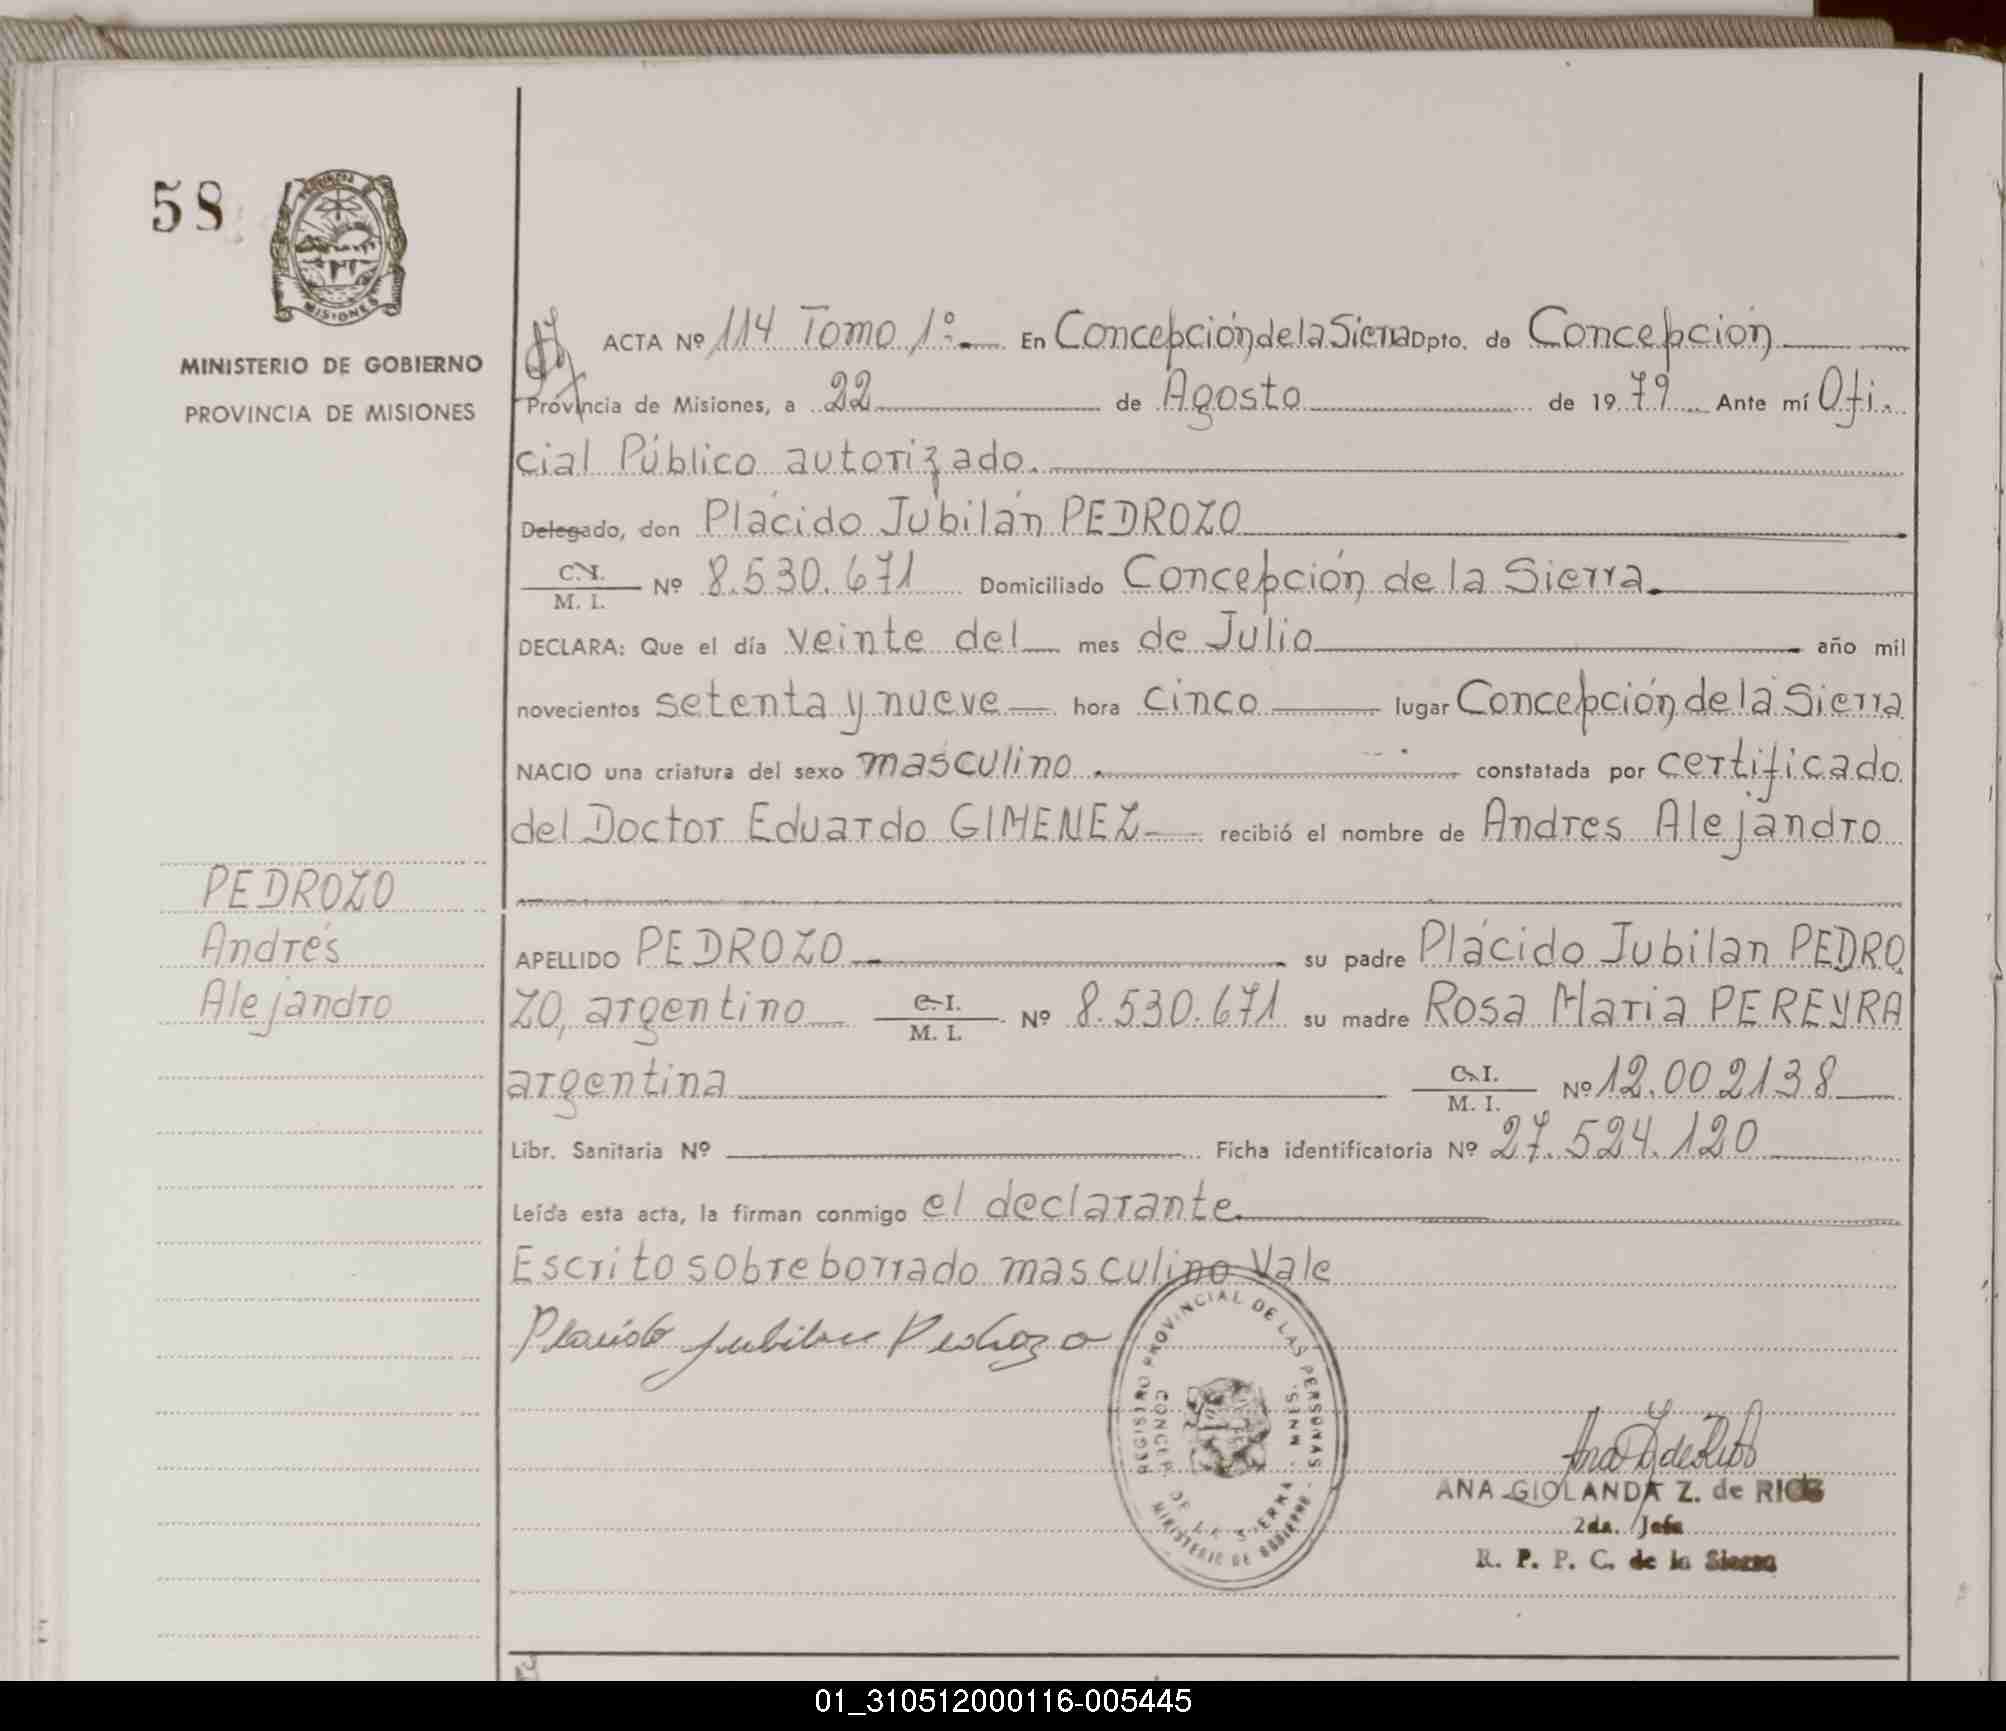 58
PROVINCIA
MISIONES
MINISTERIO DE GOBIERNO
PROVINCIA DE MISIONES
ACTA Nº 114 Tomo 1º.- En Concepción de la Sierra Dpto. de Concepción
Provincia de Misiones, a 22 de Agosto de 1979 Ante mí Ofi-
cial Público autorizado.
Delegado, don Plácido Jubilán PEDROZO
C. I.
M. I. Nº 8.530.671 Domiciliado Concepción de la Sierra.
DECLARA: Que el día veinte del mes de Julio año mil
novecientos setenta y nueve hora cinco lugar Concepción de la Sierra
NACIO una criatura del sexo masculino. constatada por certificado
del Doctor Eduardo GIMENEZ recibió el nombre de Andres Alejandro
PEDROZO
Andrés
Alejandro
APELLIDO PEDROZO su padre Plácido Jubilan PEDRO
ZO, argentino C. I. M. I. Nº 8.530.671 su madre Rosa Maria PEREYRA
argentina C. I. M. I. Nº 12.002138
Libr. Sanitaria Nº Ficha identificatoria Nº 27.524.120
Leída esta acta, la firman conmigo el declarante.
Escrito sobre borrado masculino Vale
Placido Jubilan Pedrozo
REGISTRO PROVINCIAL DE LAS PERSONAS
CONCEP. DE LA SIERRA - MNES.
MINISTERIO DE GOBIERNO
Ana Z de Rios
ANA GIOLANDA Z. de RIOS
2da. Jefe
R. P. P. C. de la Sierra
01_310512000116-005445